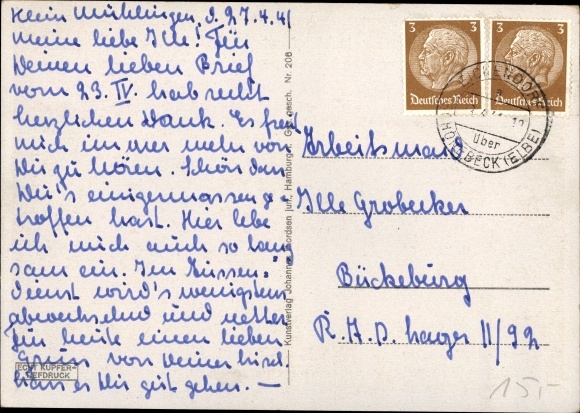 Klein Mühlingen, d. 27.4.41
meine liebe Ilse! Für
Deinen lieben Brief
vom 23. IV. hab recht
herzlichen Dank. Es freut
mich immer mehr von
Dir zu hören. Schön dass
Du's einigermassen ge-
troffen hast. Hier lebe
ich mich auch so lang
sam ein. Im Aussen-
dienst wird's wenigstens
abwechselnd und netter.
Für heute einen lieben
Gruss von Deiner
lass es Dir gut gehen. —
ECHT KUPFER-
TIEFDRUCK
Kunstverlag Johannes Goordsen jun., Hamburg 1. Ges. gesch. Nr. 206
3 3
Deutsches Reich
3 3
Deutsches Reich
über
HOLLENBECK (ELBE)
Arbeitsmaid
Ilse Grobecker
Bückeburg
R.A.D. Lager 11/92
15,-